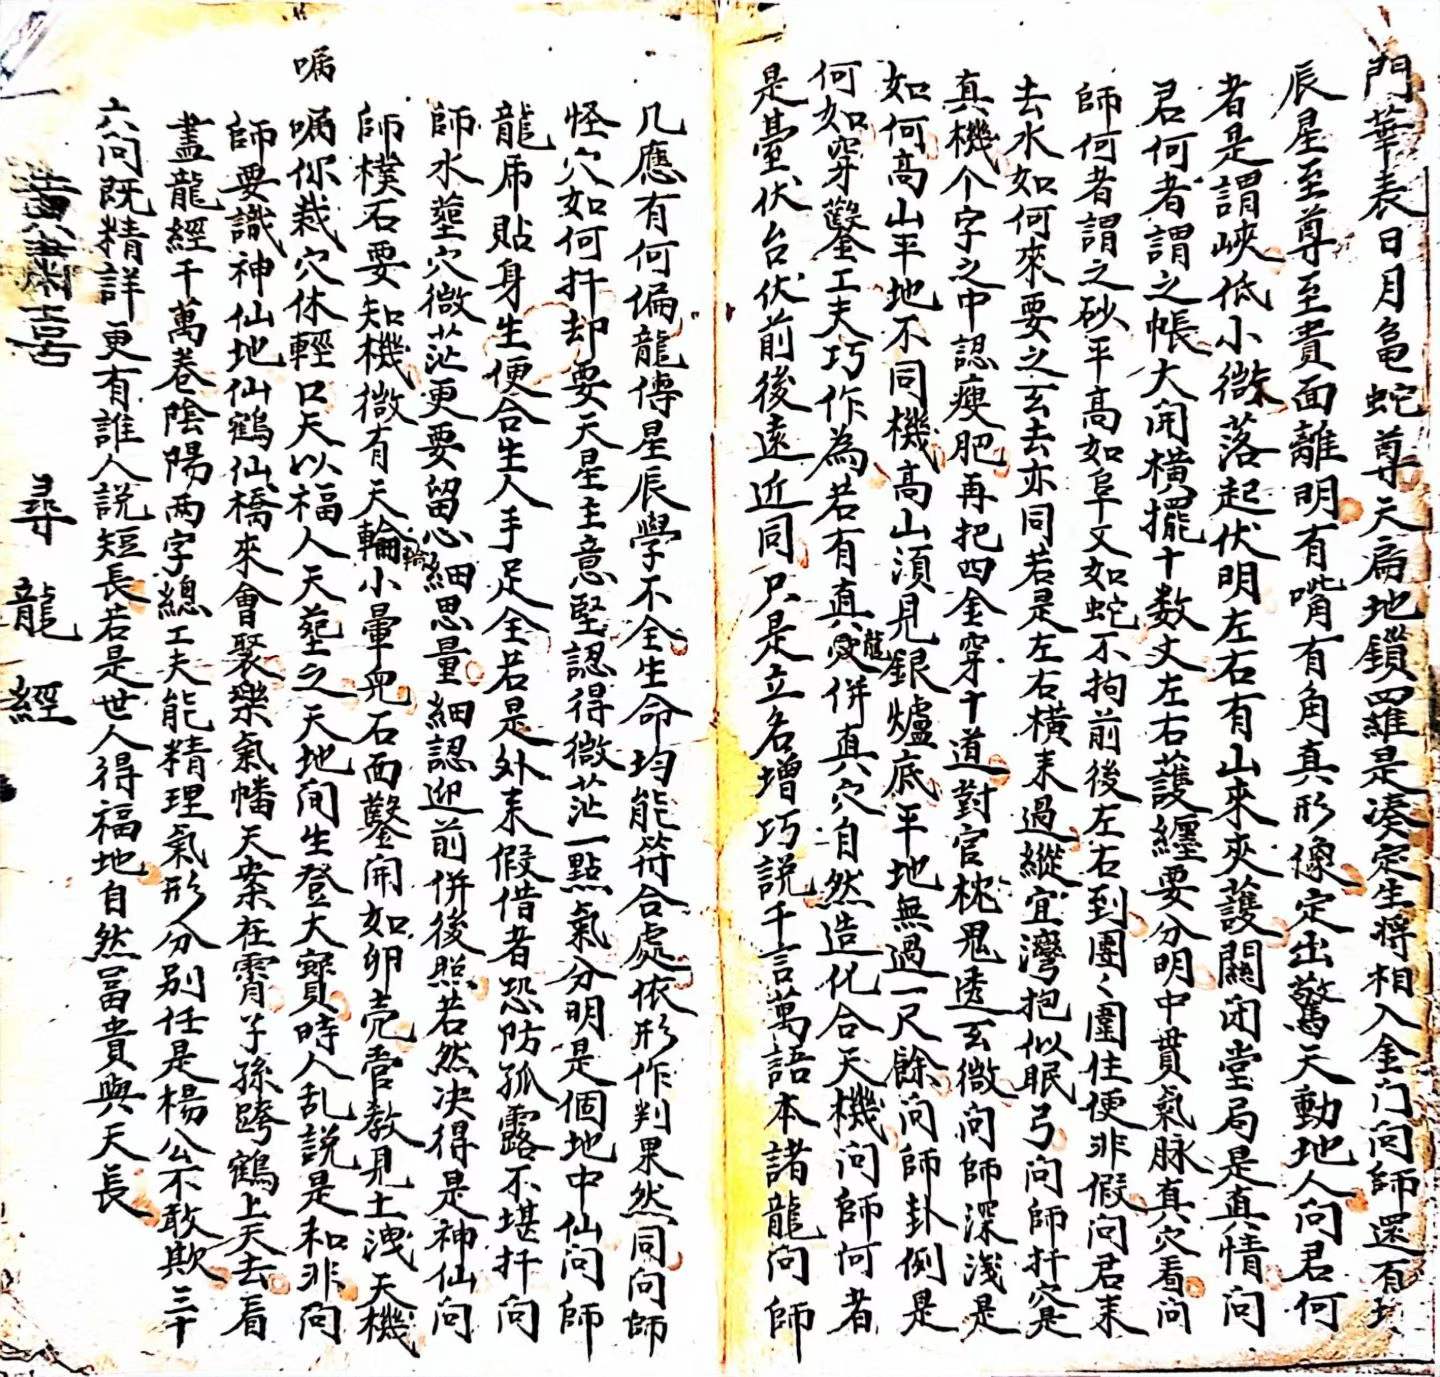 門華表日月龜蛇尊天扃地鎖羅是凑定生將相入金门问師還有
辰星至尊至貴面離明有嘴有角真形像定出驚天動地人问君何
者是謂峡低小微落起伏明左右有山來夾護關闭堂局是真情问
君何者謂之帳大開横擺十数丈左右護纏要分明中貫氣脉真穴看问
師何者謂之砂平高如阜又如蛇不拘前後左右到團々圍住便非假问君来
去水如何來要之玄去亦同若是左右横来過縱宜灣抱似眠弓问師扦穴是
真機个字之中認瘦肥再把四金穿十道對官枕鬼透玄微问師深淺是
如何高山平地不同機高山湏見銀爐底平地無過一尺餘问師卦例是
何如穿鑿工夫巧作為若有真龍併真穴自然造化合天機问師何者
是臺伏台伏前後遠近同只是立名增巧説千言萬語本諸龍问師
几應有何偏龍傳星辰學不全生命均能符合處依形作判果然同问師
怪穴如何扦却要天星主意堅認得微茫一點氣分明是個地中仙问師
龍虎貼身生便合生人手足全若是外来假借者恐防孤露不堪扦问
師水塟穴微茫更要留心細思量細認迎前併後照若然决得是神仙问
師樸石要知機微有天輪小暈兜石面鑿開如卵壳當教見土洩天機
嘱
嘱你裁穴休輕口天以福人天塟之天地间生登大寳時人乱説是和非问
師要識神仙地仙鶴仙橋來會聚樂氣幡天案在霄子孫跨鶴上天去看
盡龍經千萬卷陰陽两字總工夫能精理氣形分别任是楊公不敢欺三十
六问既精詳更有誰人説短長若是世人得福地自然冨貴與天長
尋龍經